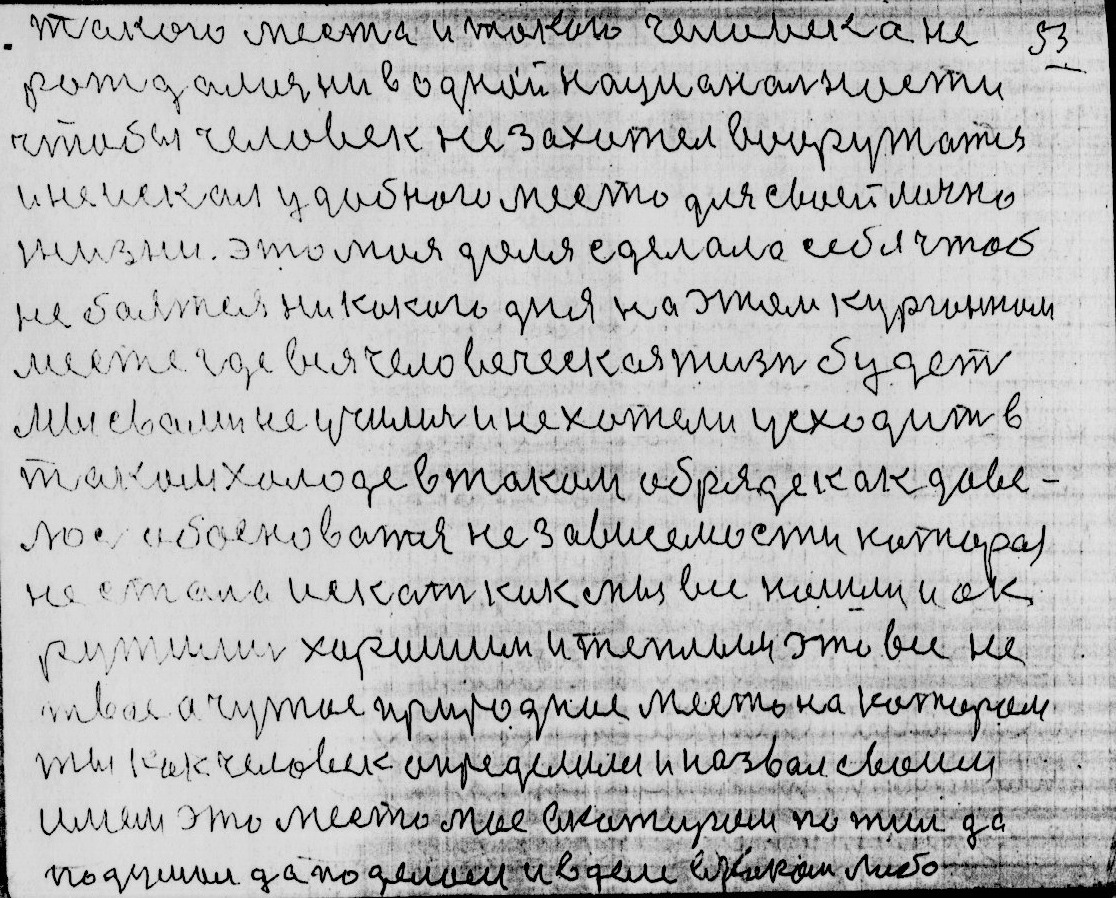 такого места и такого человека не 53
рождалися ни в одной национальности
чтобы человек не захотел вооружатся
и не искал удобного место для своей лично
жизни. это моя доля сделала себя чтоб
не боятся никокого дня на этом курганном
месте где вся человеческая жизн будет
мы свами не училися и не хотели усходит в
таком холоде в таком обряде как дове-
лос обосноватся независемости котора
не стала искат как мы все нашли и ок
ружилис хорошим и теплым это все не
твое а чужое природное месть на котором
ты как человек определили и назвал своим
имем это место мое вкотором по жил да
подумал да поделал и вделе в каком либо